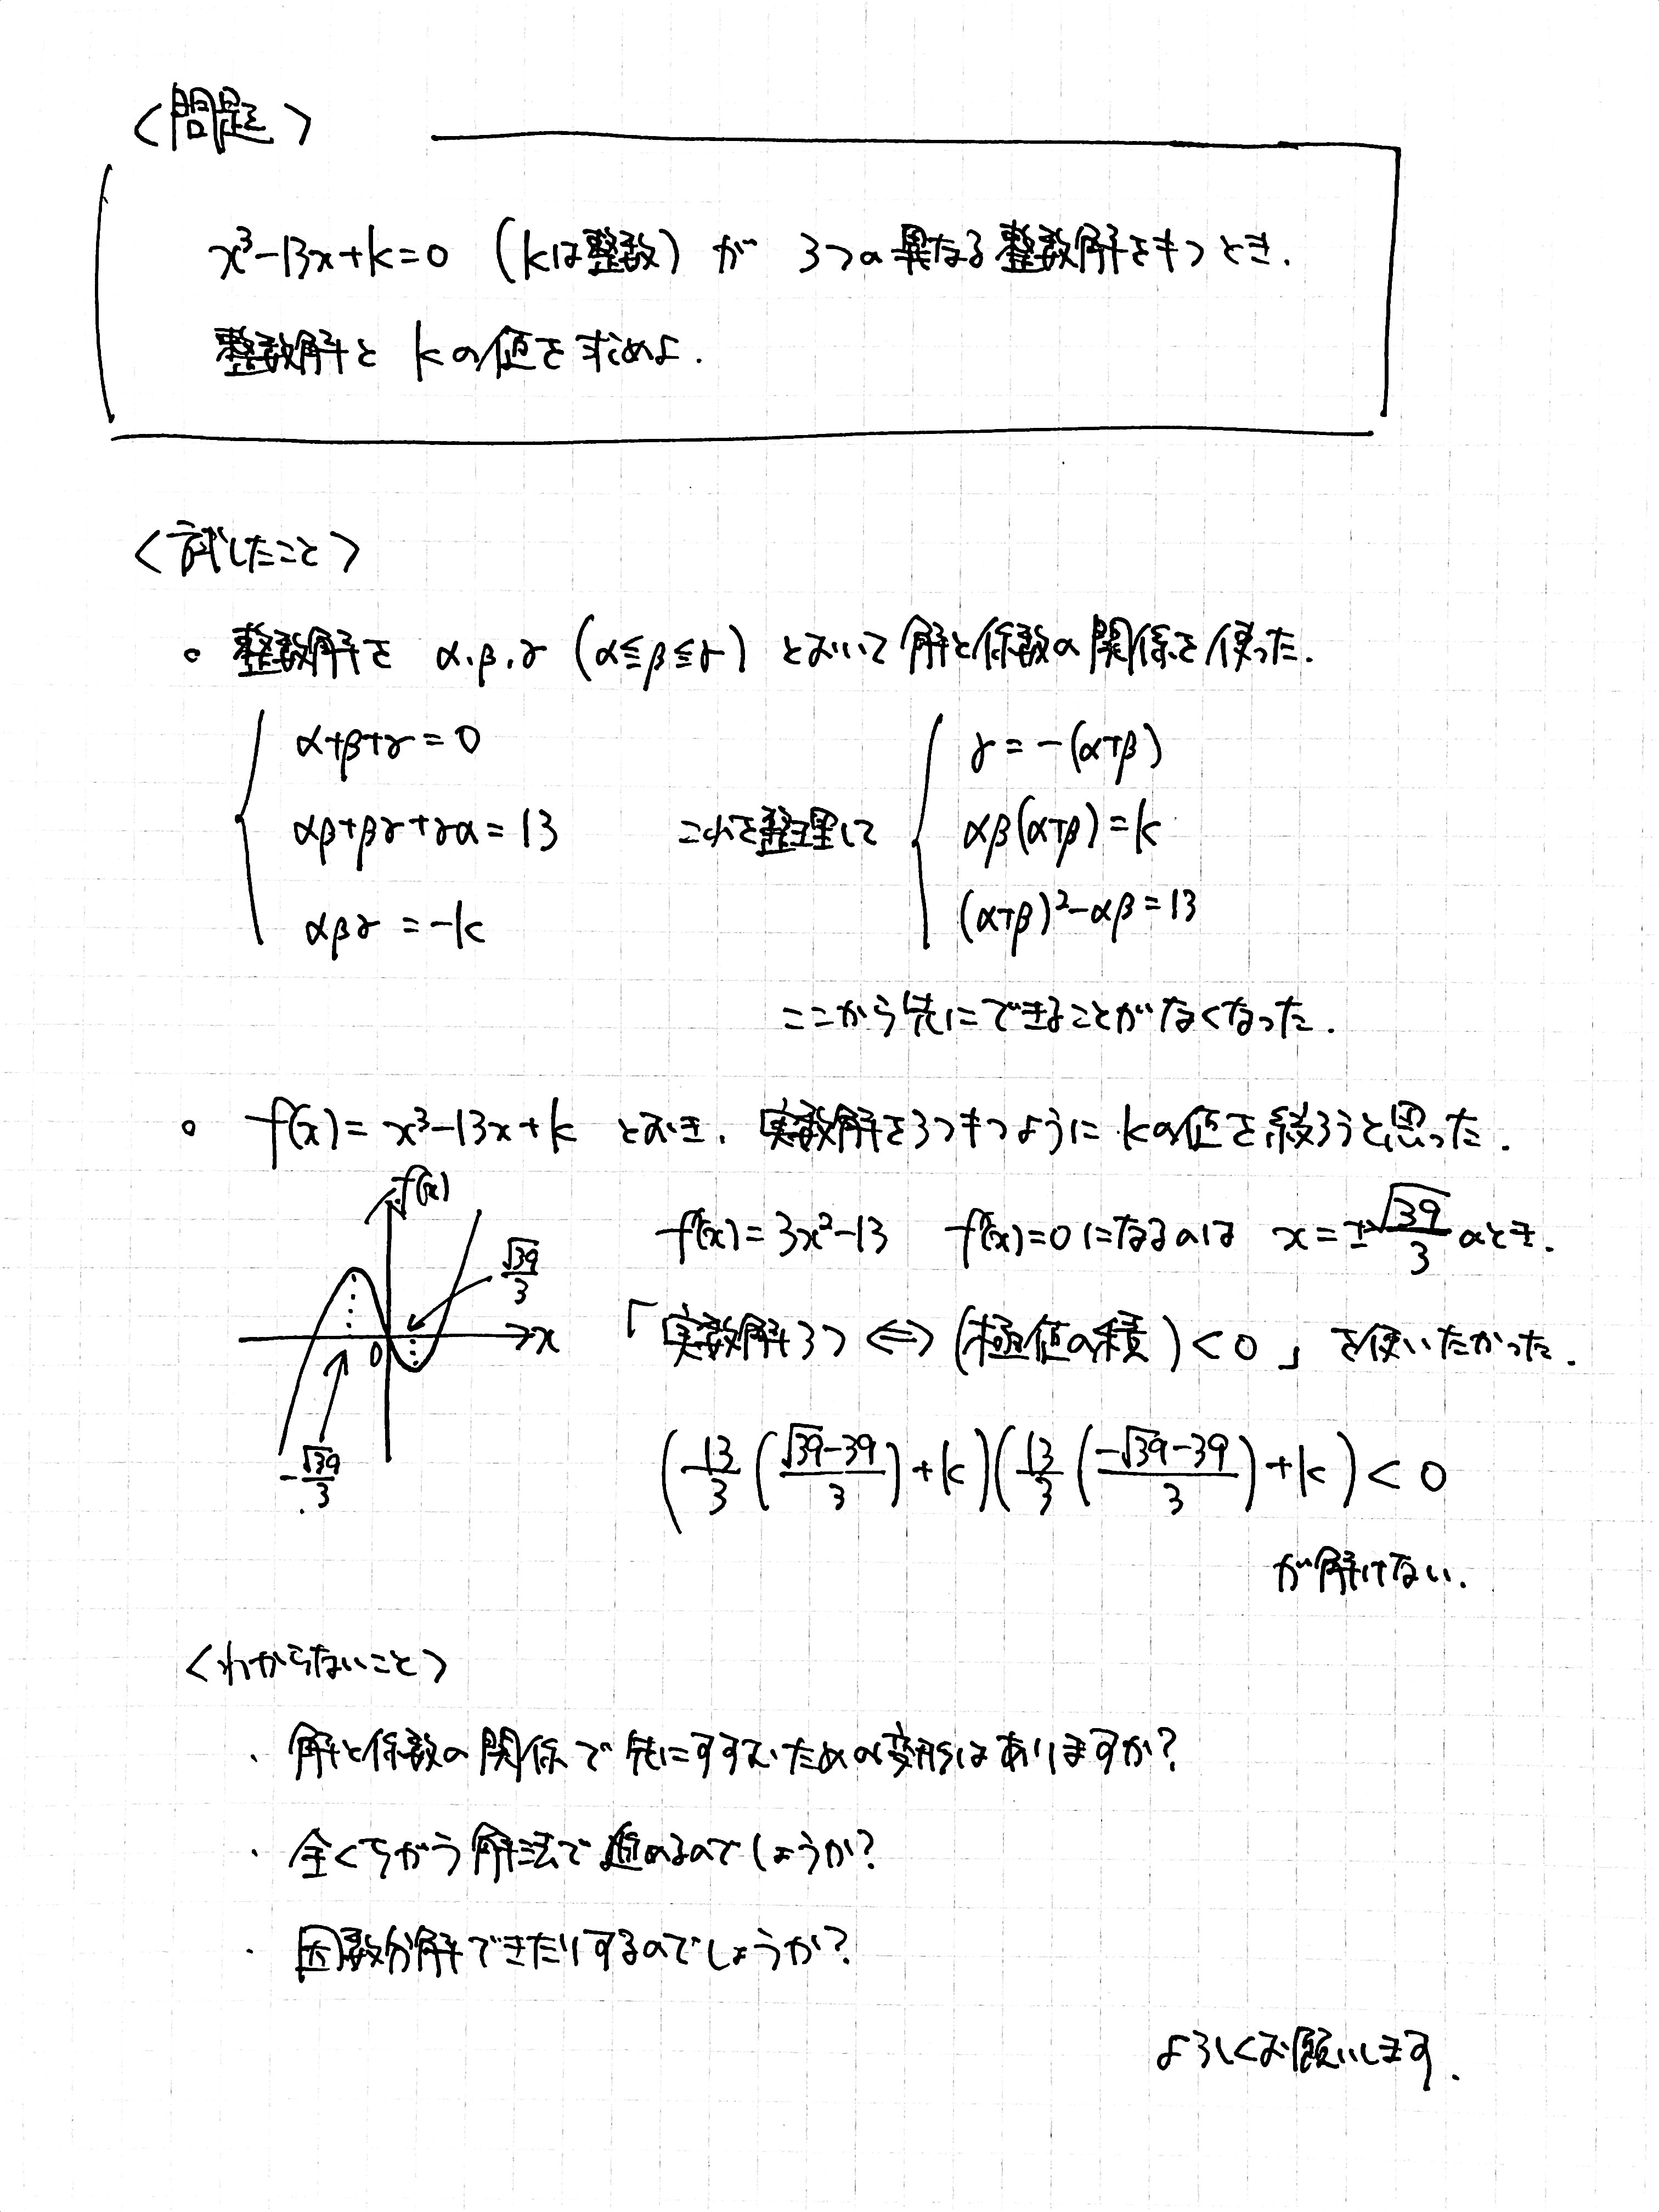 <問題>
x³-13x+k=0 (kは整数) が 3つの異なる整数解をもつとき.
整数解と kの値を求めよ.
<試したこと>
○ 整数解を α,β,γ (α≦β≦γ) とおいて解と係数の関係を使った.
α+β+γ=0
αβ+βγ+γα=13
αβγ=-k
これを整理して
γ=-(α+β)
αβ(α+β)=k
(α+β)²-αβ=13
ここから先にできることがなくなった.
○ f(x)=x³-13x+k とおき. 実数解を3つもつように kの値を絞ろうと思った.
f(x)
√39/3
x
0
-√39/3
f'(x)=3x²-13 f'(x)=0になるのは x=±√39/3 のとき.
「実数解3つ ⇔ (極値の積)<0」を使いたかった.
(13/3(√39-39/3)+k)(13/3(-√39-39/3)+k)<0
が解けない.
<わからないこと>
・解と係数の関係で先にすすむための変形はありますか?
・全くちがう解法で進めるのでしょうか?
・因数分解できたりするのでしょうか?
よろしくお願いします.